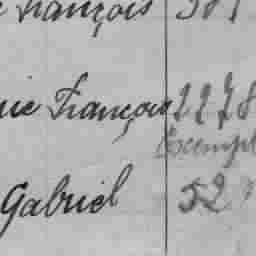 François 581
François 2278
Exempt
Gabriel 52